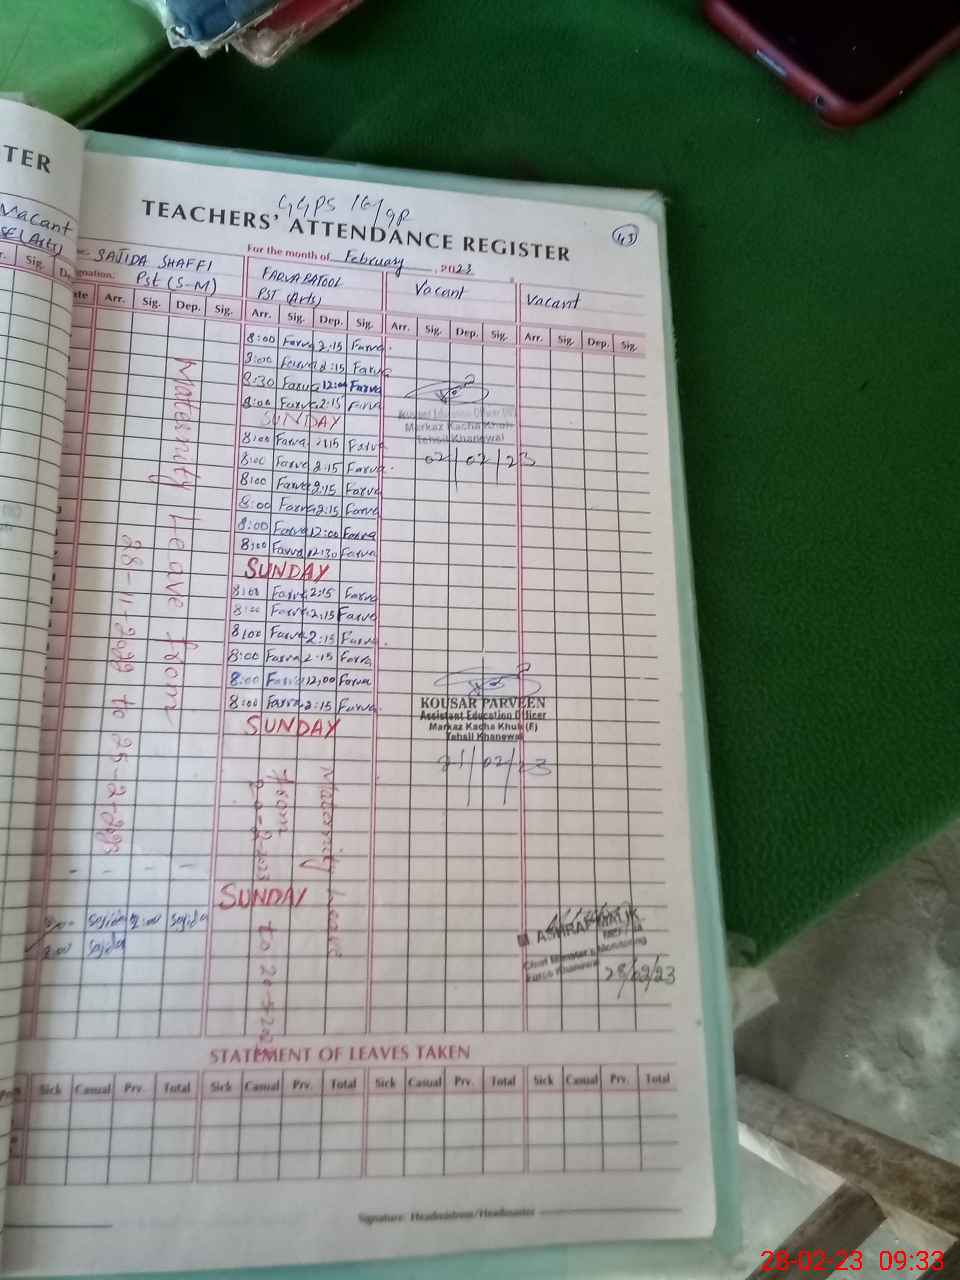 TER
Vacant
PSE (Arts)
Sig.
GGPS 16/9R
TEACHERS' ATTENDANCE REGISTER
43
For the month of February, 2023
SAJIDA SHAFFI
gnation: Pst (S-M)
FARVA BATOOL
PST (Arts)
Vacant
Vacant
Arr. Sig. Dep. Sig. Arr. Sig. Dep. Sig. Arr. Sig. Dep. Sig. Arr. Sig. Dep. Sig.
8:00 Farva 2:15 Farva
8:00 Farva 2:15 Farva
8:30 Farva 12:00 Farva
8:00 Farva 2:15 Farva
SUNDAY
8:00 Farva 2:15 Farva
8:00 Farva 2:15 Farva
8:00 Farva 2:15 Farva
8:00 Farva 2:15 Farva
8:00 Farva 12:00 Farva
8:00 Farva 12:30 Farva
SUNDAY
8:00 Farva 2:15 Farva
8:00 Farva 2:15 Farva
8:00 Farva 2:15 Farva
8:00 Farva 2:15 Farva
8:00 Farva 12:00 Farva
8:00 Farva 2:15 Farva
SUNDAY
Maternity Leave from
20-2-2023
to 20-5-202
SUNDAY
Maternity Leave from
28-11-2022 to 25-2-2023
Sajida 2:00 Sajida
8:00 Sajida
Assistant Education Officer (F)
Markaz Kacha Khuh
Tehsil Khanewal
02/02/23
KOUSAR PARVEEN
Assistant Education Officer
Markaz Kacha Khuh (F)
Tehsil Khanewal
21/02/23
ASHRAF
Chief Minister's Monitoring
Force Khanewal
28/02/23
STATEMENT OF LEAVES TAKEN
Sick Casual Prv. Total Sick Casual Prv. Total Sick Casual Prv. Total Sick Casual Prv. Total
Signature: Headmistress/Headmaster
28-02-23 09:33